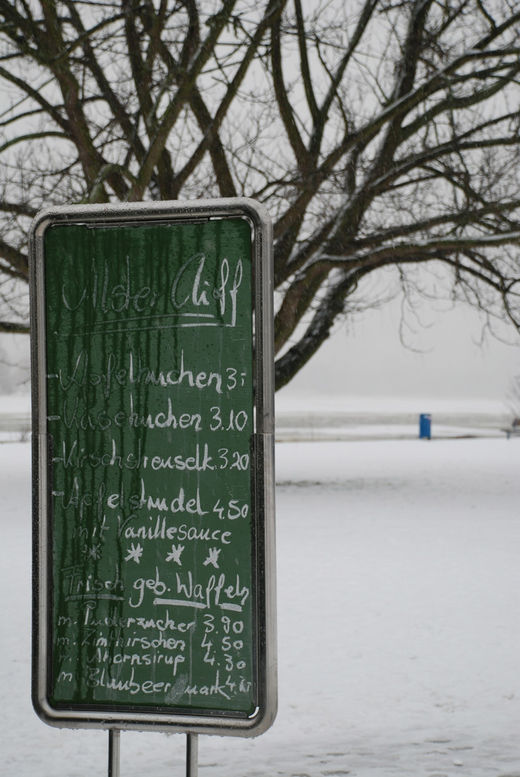 Alster Cliff
- Apfelkuchen 3,-
- Käsekuchen 3.10
- Kirschstreuselk. 3.20
- Apfelstrudel 4.50
mit Vanillesauce
Frisch geb. Waffeln
m. Puderzucker 3.90
m. Zimtkirschen 4.50
m. Ahornsirup 4.30
m. Blaubeer quark